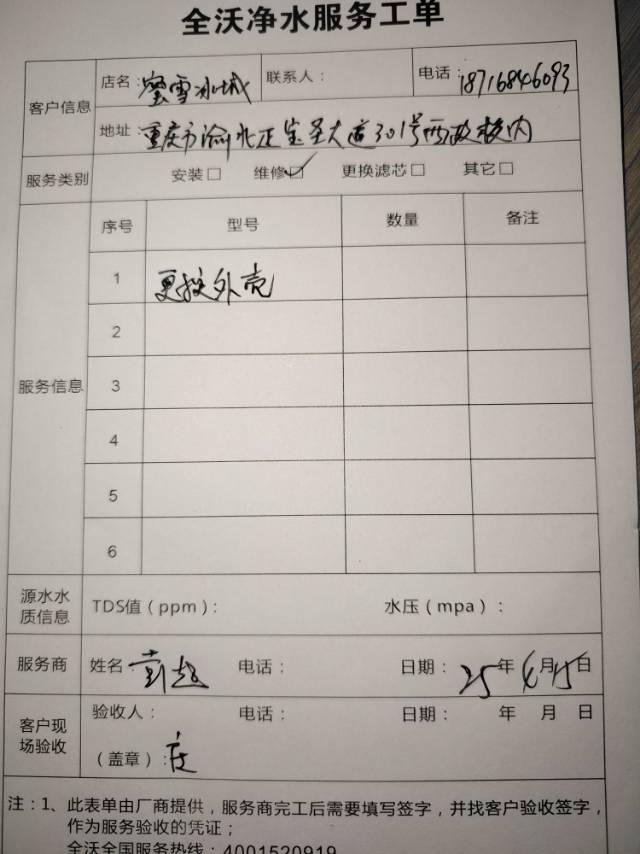 全沃净水服务工单
客户信息
店名：蜜雪冰城 联系人： 电话：18716846093
地址：重庆市渝北区宝圣大道301号西政校内
服务类别 安装□ 维修☑ 更换滤芯□ 其它□
服务信息
序号 型号 数量 备注
1 更换外壳
2
3
4
5
6
源水水质信息 TDS值（ppm）： 水压（mpa）：
服务商 姓名： 电话： 日期：25年4月15日
客户现场验收
验收人： 电话： 日期： 年 月 日
（盖章）：
注：1、此表单由厂商提供，服务商完工后需要填写签字，并找客户验收签字，
作为服务验收的凭证；
全沃全国服务热线：4001520919